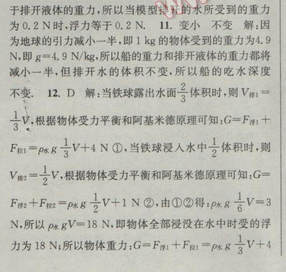 于排开液体的重力,所以当模型排开的水所受到的重力
为 0.2 N 时,浮力等于 0.2 N. 11. 变小 不变 解:因
为地球的引力减小一半,即 1 kg 的物体受到的重力为 4.9
N,即 g=4.9 N/kg,所以船的重力和排开液体的重力都将
减小一半,但排开水的体积不变,所以船的吃水深度
不变. 12. D 解:当铁球露出水面 2/3 体积时,则 V排1=
1/3 V,根据物体受力平衡和阿基米德原理可知:G=F浮1+
F拉1=ρ水 g 1/3 V+4 N ①,当铁球浸入水中 1/2 体积时,则
V排2=1/2 V,根据物体受力平衡和阿基米德原理可知:G=
F浮2+F拉2=ρ水 g 1/2 V+1 N ②,由①②得:ρ水 g 1/6 V=3
N,所以 ρ水 gV=18 N,即物体全部浸没在水中时受的浮
力为 18 N;所以物体重力:G=F浮1+F拉1=ρ水 g 1/3 V+4